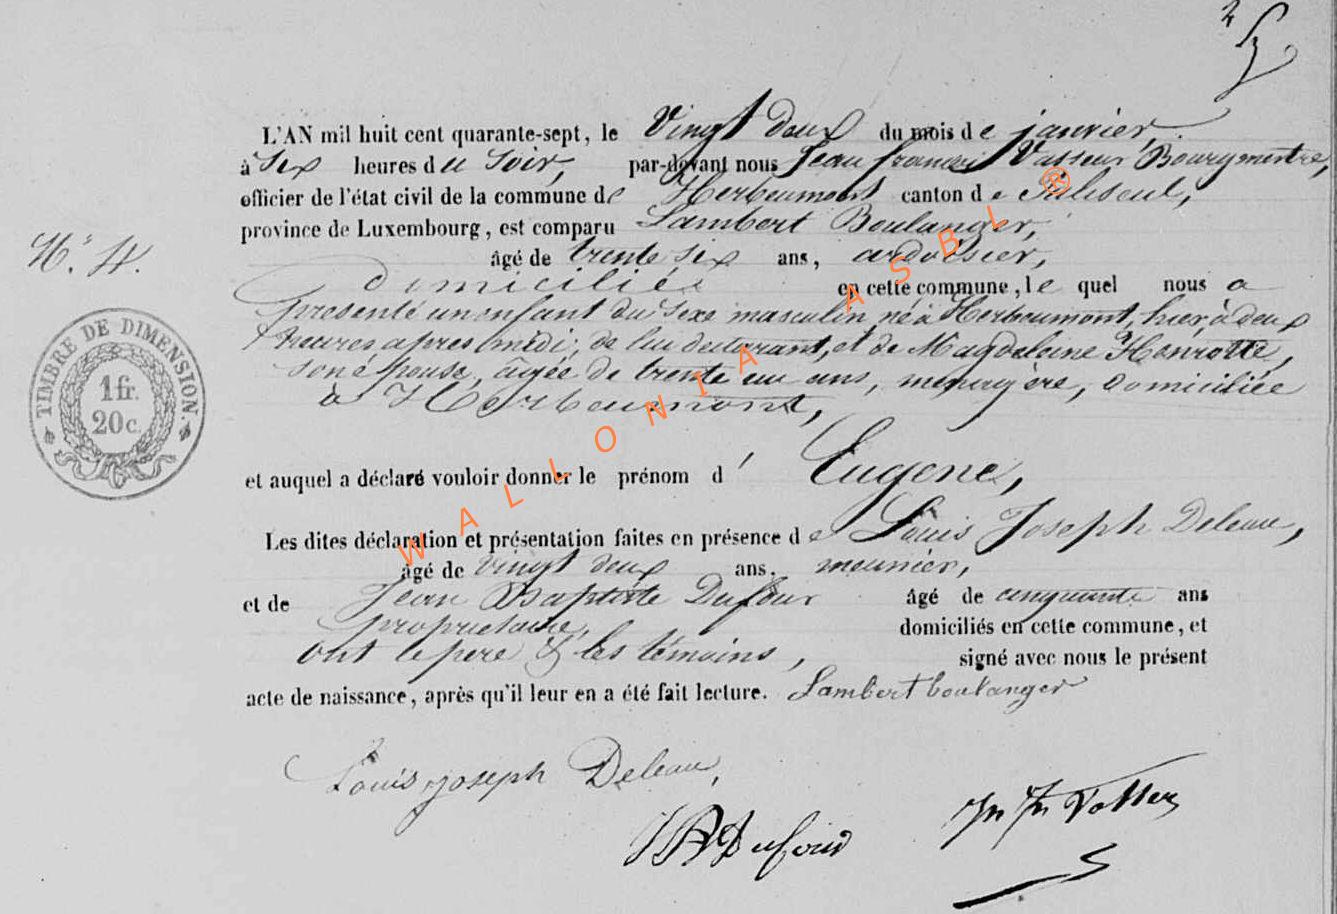 L'AN mil huit cent quarante-sept, le Vingt deux du mois de janvier,
à Six heures du Soir, par-devant nous Jean françois Vasseur Bourgmestre,
officier de l'état civil de la commune de Herbeumont canton de Paliseul,
province de Luxembourg, est comparu Lambert Boulanger,
N.° 4.
âgé de trente six ans, ardoisier,
domicilié en cette commune, le quel nous a
présenté un enfant du Sexe masculin né à Herbeumont, hier, à deux
heures après midi, de lui déclarant, et de Magdeleine Henrotte,
son épouse, âgée de trente un ans, ménagère, domiciliée
à Herbeumont,
TIMBRE DE DIMENSION.
1 fr.
20 c.
et auquel a déclaré vouloir donner le prénom d' Eugene,
Les dites déclaration et présentation faites en présence de Louis Joseph Deleau,
âgé de vingt deux ans, meunier,
et de Jean Baptiste Dufour âgé de cinquante ans
propriétaire, domiciliés en cette commune, et
ont le père & les témoins, signé avec nous le présent
acte de naissance, après qu'il leur en a été fait lecture. Lambert boulanger
Louis joseph Deleau,
JB Dufour
WALLONIA ASBL ®